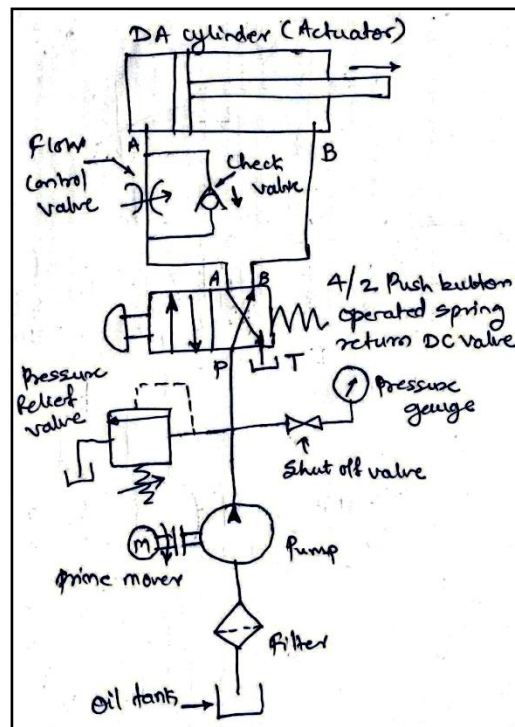 DA cylinder (Actuator)
A
B
Flow
Control
valve
Check
valve
A
B
4/2 Push button
operated spring
return DC valve
P
T
Pressure
Relief
valve
Pressure
gauge
Shut off valve
M
Pump
prime mover
Filter
Oil tank